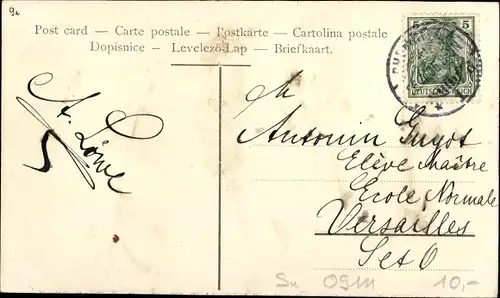 9a
Post card — Carte postale — Postkarte — Cartolina postale
Dopisnice — Levelező-Lap — Briefkaart.
5 5
DEUTSCHES REICH
A. Löwe
M
Antonin Guyot
Elève Maître
Ecole Normale
Versailles
Set O
Su 0911 10,-